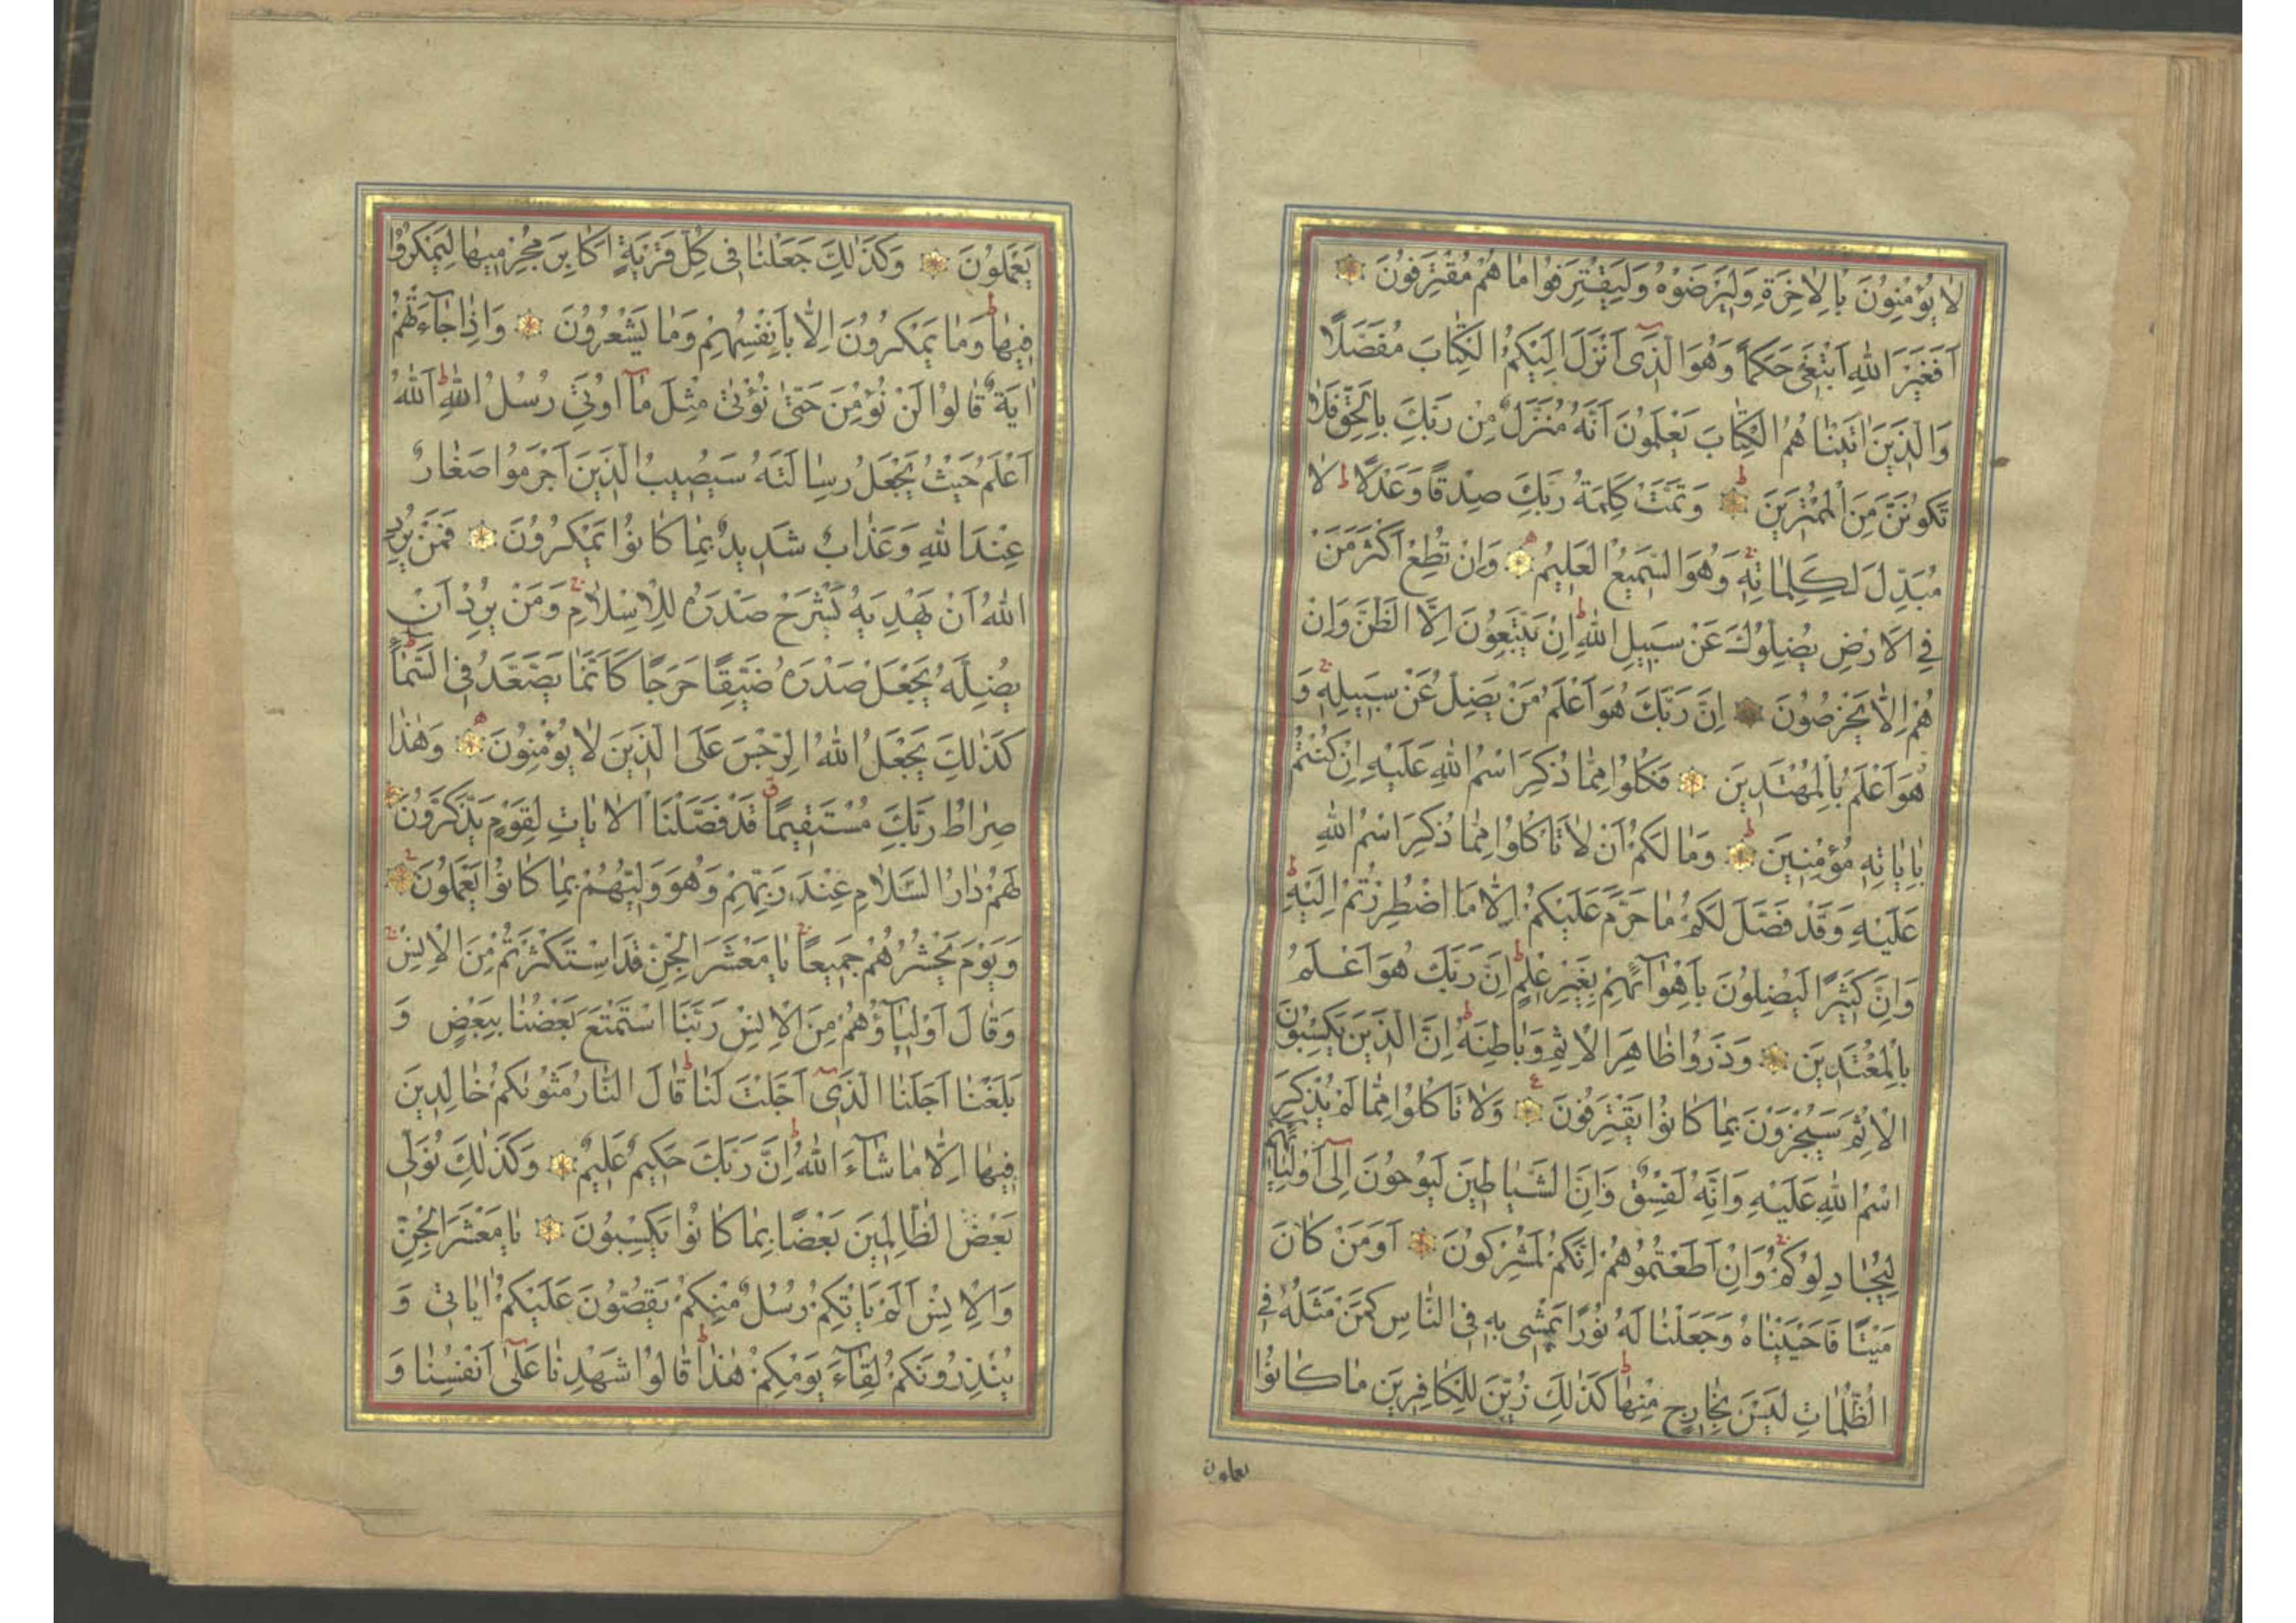 لَا يُؤْمِنُونَ بِالْاٰخِرَةِ وَلِيَرْضَوْهُ وَلِيَقْتَرِفُوا مَا هُمْ مُقْتَرِفُونَ
اَفَغَيْرَ اللّٰهِ اَبْتَغٖى حَكَمًا وَهُوَ الَّذٖٓى اَنْزَلَ اِلَيْكُمُ الْكِتَابَ مُفَصَّلًا
وَالَّذٖينَ اٰتَيْنَاهُمُ الْكِتَابَ يَعْلَمُونَ اَنَّهُ مُنَزَّلٌ مِنْ رَبِّكَ بِالْحَقِّ فَلَا
تَكُونَنَّ مِنَ الْمُمْتَرٖينَ وَتَمَّتْ كَلِمَةُ رَبِّكَ صِدْقًا وَعَدْلًا ط لَا
مُبَدِّلَ لِكَلِمَاتِهٖ وَهُوَ السَّمٖيعُ الْعَلٖيمُ وَاِنْ تُطِعْ اَكْثَرَ مَنْ
فِى الْاَرْضِ يُضِلُّوكَ عَنْ سَبٖيلِ اللّٰهِ ط اِنْ يَتَّبِعُونَ اِلَّا الظَّنَّ وَاِنْ
هُمْ اِلَّا يَخْرُصُونَ اِنَّ رَبَّكَ هُوَ اَعْلَمُ مَنْ يَضِلُّ عَنْ سَبٖيلِهٖ وَ
هُوَ اَعْلَمُ بِالْمُهْتَدٖينَ فَكُلُوا مِمَّا ذُكِرَ اسْمُ اللّٰهِ عَلَيْهِ اِنْ كُنْتُمْ
بِاٰيَاتِهٖ مُؤْمِنٖينَ وَمَا لَكُمْ اَنْ لَا تَاْكُلُوا مِمَّا ذُكِرَ اسْمُ اللّٰهِ
عَلَيْهِ وَقَدْ فَصَّلَ لَكُمْ مَا حَرَّمَ عَلَيْكُمْ اِلَّا مَا اضْطُرِرْتُمْ اِلَيْهِ ط
وَاِنَّ كَثٖيرًا لَيُضِلُّونَ بِاَهْوَٓائِهِمْ بِغَيْرِ عِلْمٍ ط اِنَّ رَبَّكَ هُوَ اَعْلَمُ
بِالْمُعْتَدٖينَ وَذَرُوا ظَاهِرَ الْاِثْمِ وَبَاطِنَهُ ط اِنَّ الَّذٖينَ يَكْسِبُونَ
الْاِثْمَ سَيُجْزَوْنَ بِمَا كَانُوا يَقْتَرِفُونَ ع وَلَا تَاْكُلُوا مِمَّا لَمْ يُذْكَرِ
اسْمُ اللّٰهِ عَلَيْهِ وَاِنَّهُ لَفِسْقٌ وَاِنَّ الشَّيَاطٖينَ لَيُوحُونَ اِلٰٓى اَوْلِيَائِهِمْ
لِيُجَادِلُوكُمْ وَاِنْ اَطَعْتُمُوهُمْ اِنَّكُمْ لَمُشْرِكُونَ اَوَمَنْ كَانَ
مَيْتًا فَاَحْيَيْنَاهُ وَجَعَلْنَا لَهُ نُورًا يَمْشٖى بِهٖ فِى النَّاسِ كَمَنْ مَثَلُهُ فِى
الظُّلُمَاتِ لَيْسَ بِخَارِجٍ مِنْهَا ط كَذٰلِكَ زُيِّنَ لِلْكَافِرٖينَ مَا كَانُوا
يعملون
يَعْمَلُونَ وَكَذٰلِكَ جَعَلْنَا فٖى كُلِّ قَرْيَةٍ اَكَابِرَ مُجْرِمٖيهَا لِيَمْكُرُوا
فٖيهَا ط وَمَا يَمْكُرُونَ اِلَّا بِاَنْفُسِهِمْ وَمَا يَشْعُرُونَ وَاِذَا جَٓاءَتْهُمْ
اٰيَةٌ قَالُوا لَنْ نُؤْمِنَ حَتّٰى نُؤْتٰى مِثْلَ مَٓا اُوتِىَ رُسُلُ اللّٰهِ ط اَللّٰهُ
اَعْلَمُ حَيْثُ يَجْعَلُ رِسَالَتَهُ سَيُصٖيبُ الَّذٖينَ اَجْرَمُوا صَغَارٌ
عِنْدَ اللّٰهِ وَعَذَابٌ شَدٖيدٌ بِمَا كَانُوا يَمْكُرُونَ فَمَنْ يُرِدِ
اللّٰهُ اَنْ يَهْدِيَهُ يَشْرَحْ صَدْرَهُ لِلْاِسْلَامِ وَمَنْ يُرِدْ اَنْ
يُضِلَّهُ يَجْعَلْ صَدْرَهُ ضَيِّقًا حَرَجًا كَاَنَّمَا يَصَّعَّدُ فِى السَّمَاءِ ط
كَذٰلِكَ يَجْعَلُ اللّٰهُ الرِّجْسَ عَلَى الَّذٖينَ لَا يُؤْمِنُونَ وَهٰذَا
صِرَاطُ رَبِّكَ مُسْتَقٖيمًا ق قَدْ فَصَّلْنَا الْاٰيَاتِ لِقَوْمٍ يَذَّكَّرُونَ
لَهُمْ دَارُ السَّلَامِ عِنْدَ رَبِّهِمْ وَهُوَ وَلِيُّهُمْ بِمَا كَانُوا يَعْمَلُونَ
وَيَوْمَ يَحْشُرُهُمْ جَمٖيعًا يَا مَعْشَرَ الْجِنِّ قَدِ اسْتَكْثَرْتُمْ مِنَ الْاِنْسِ
وَقَالَ اَوْلِيَٓاؤُهُمْ مِنَ الْاِنْسِ رَبَّنَا اسْتَمْتَعَ بَعْضُنَا بِبَعْضٍ وَ
بَلَغْنَا اَجَلَنَا الَّذٖٓى اَجَّلْتَ لَنَا ط قَالَ النَّارُ مَثْوٰيكُمْ خَالِدٖينَ
فٖيهَا اِلَّا مَا شَٓاءَ اللّٰهُ ط اِنَّ رَبَّكَ حَكٖيمٌ عَلٖيمٌ وَكَذٰلِكَ نُوَلّٖى
بَعْضَ الظَّالِمٖينَ بَعْضًا بِمَا كَانُوا يَكْسِبُونَ يَا مَعْشَرَ الْجِنِّ
وَالْاِنْسِ اَلَمْ يَاْتِكُمْ رُسُلٌ مِنْكُمْ يَقُصُّونَ عَلَيْكُمْ اٰيَاتٖى وَ
يُنْذِرُونَكُمْ لِقَٓاءَ يَوْمِكُمْ هٰذَا ط قَالُوا شَهِدْنَا عَلٰٓى اَنْفُسِنَا وَ